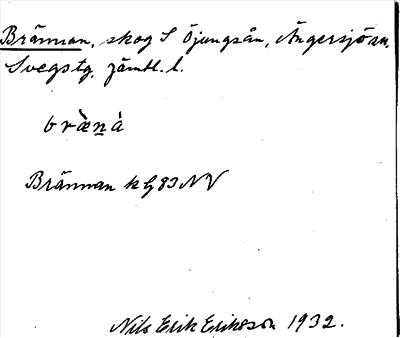 Brännan, skog S Öjungsån, Ängersjö sn,
Svegs tg, Jämtl. l.
bræ̀nà
Brännan k G 83 NV
Nils Erik Eriksson 1932.